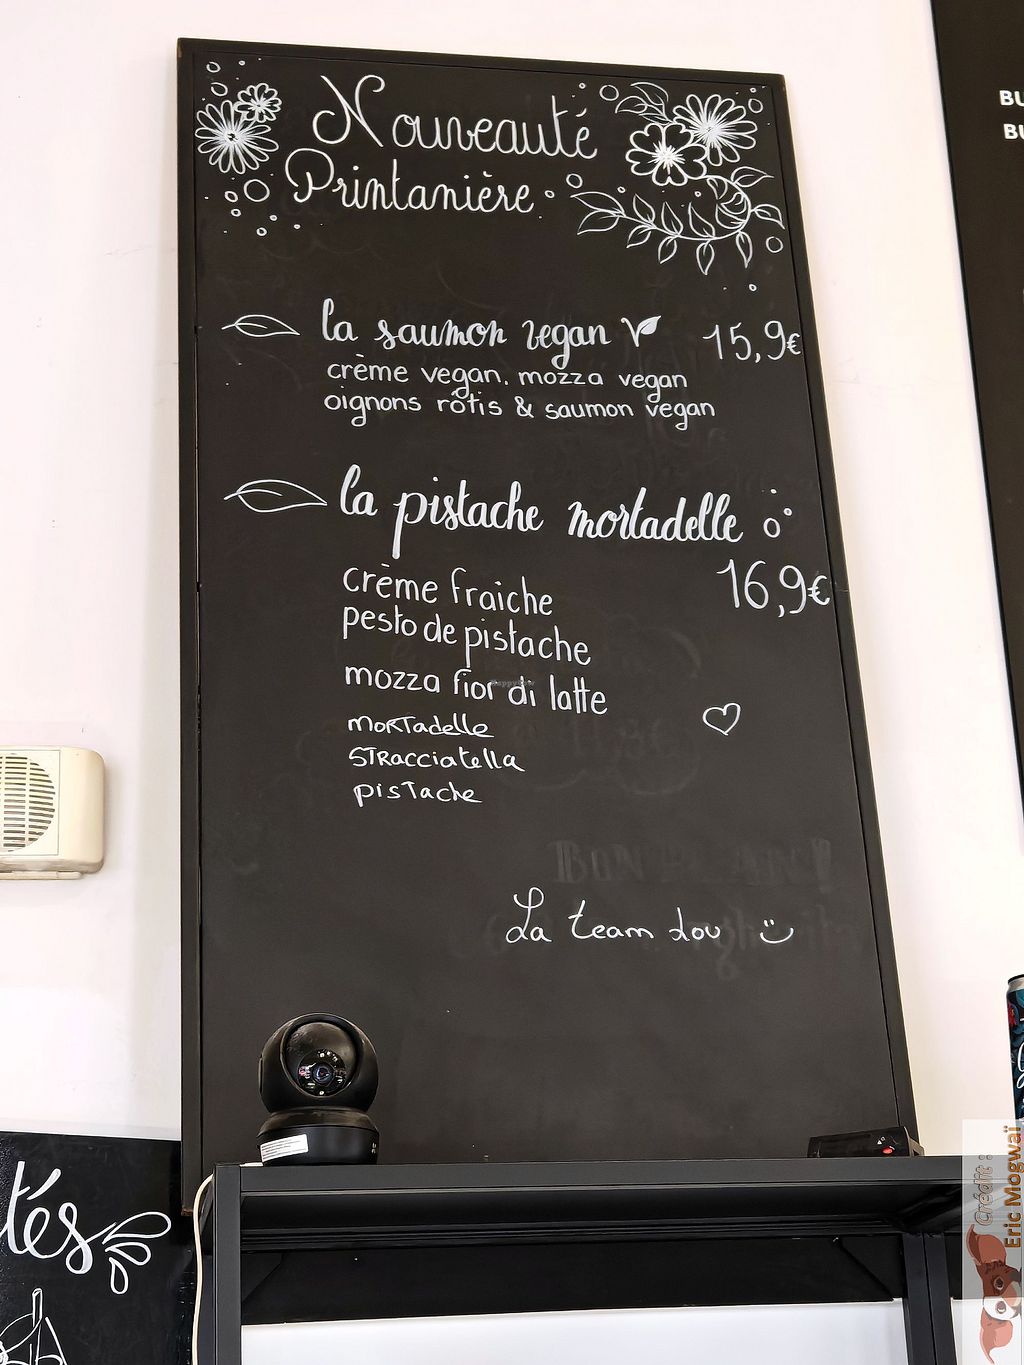 Nouveauté
Printanière
la saumon vegan
15,9€
crème vegan. mozza vegan
oignons rôtis & saumon vegan
la pistache mortadelle
16,9€
crème fraiche
pesto de pistache
mozza fior di latte
mortadelle
stracciatella
pistache
La team Lou
BON PLAN!
tés
BU
BU
HappyCow
Crédit :
Eric Mogwaï